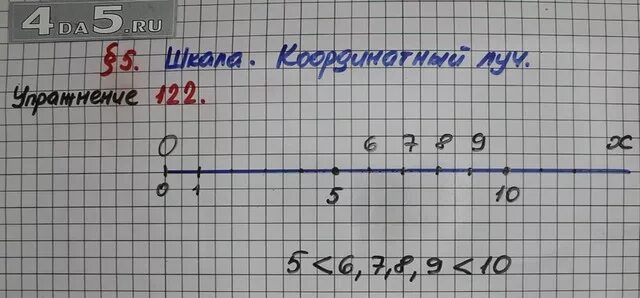 4DA5.RU
§5. Шкала. Координатный луч.
Упражнение 122.
O 6 7 8 9 x
0 1 5 10
5 < 6, 7, 8, 9 < 10